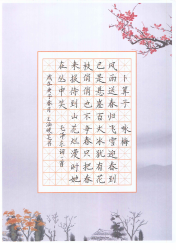 卜算子 咏梅
风雨送春归飞雪迎春到
已是悬崖百丈冰犹有花
枝俏俏也不争春只把春
来报待到山花烂漫时她
在丛中笑 毛泽东词一首